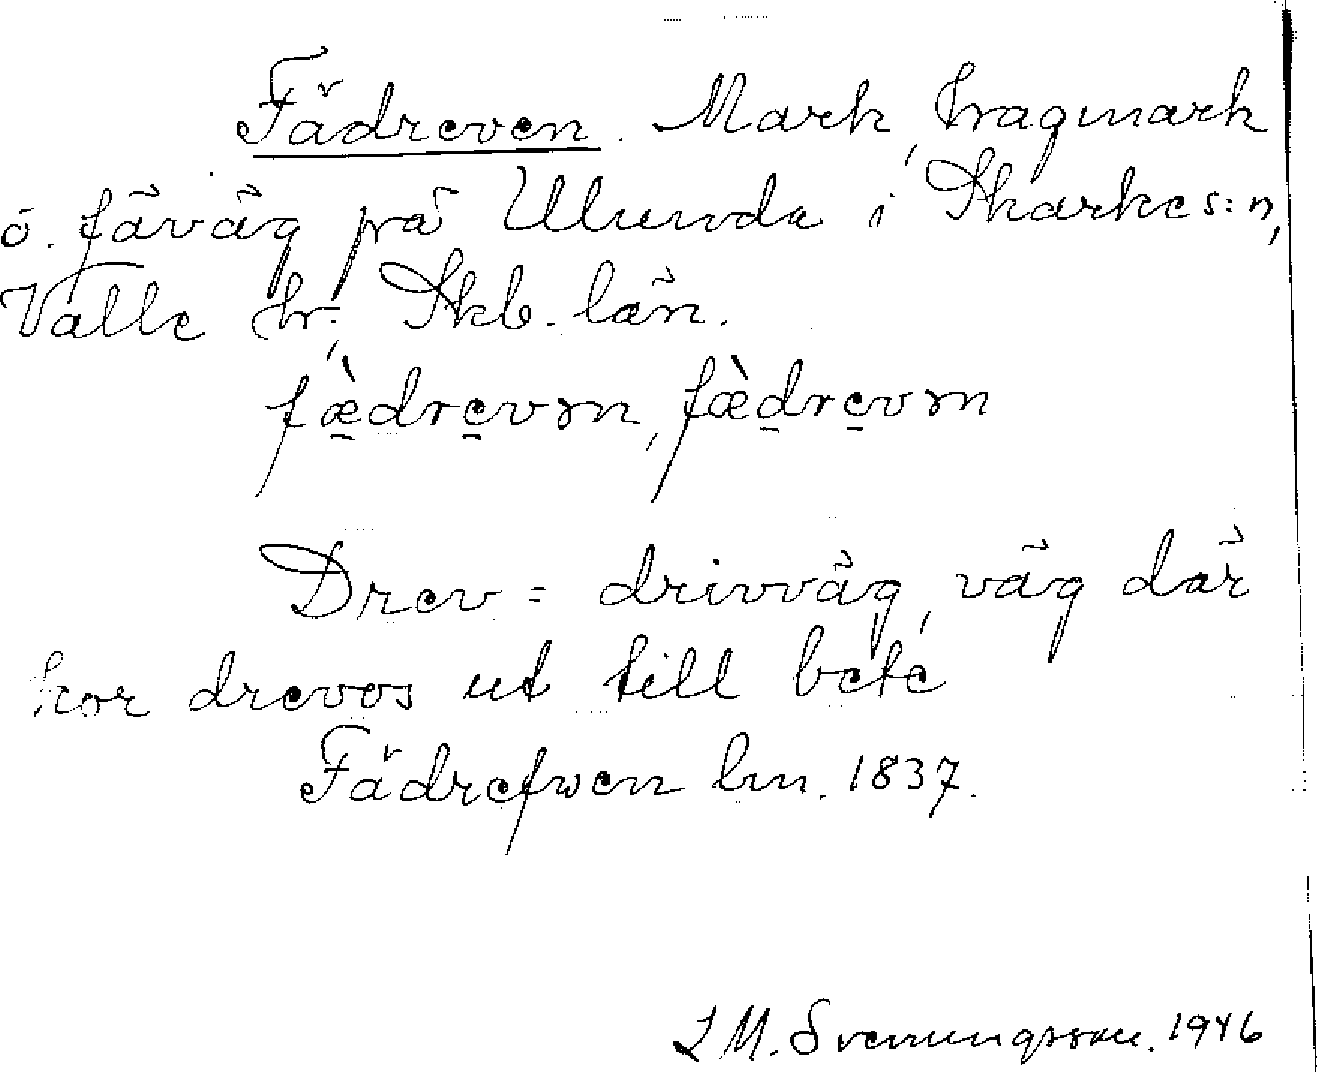 Fädreven. Mark, hagmark
o. fäväg på Ulunda i Skarke s:n,
Valle hr, Skb. län.
fæ̀drevən, fæ̀drevən
Drev = drivväg, väg där
kor drevos ut till bete
Fädrefwen lm. 1837.
L M. Svenungsson. 1946